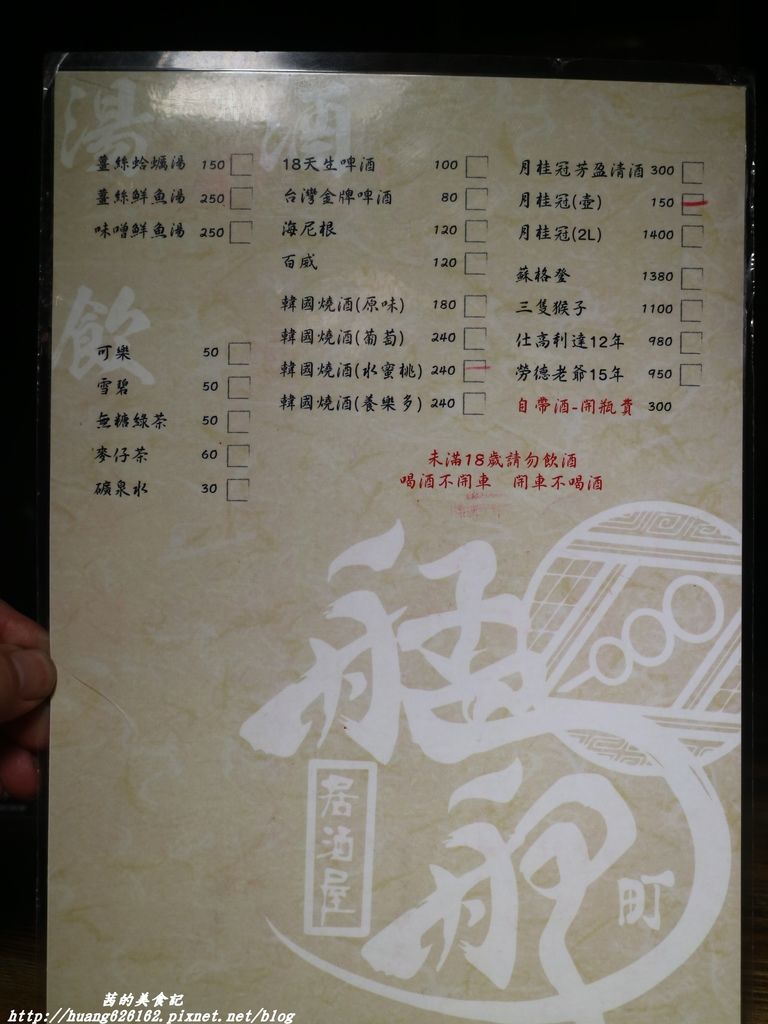 湯
薑絲蛤蠣湯 150
薑絲鮮魚湯 250
味噌鮮魚湯 250
飲
可樂 50
雪碧 50
無糖綠茶 50
麥仔茶 60
礦泉水 30
酒
18天生啤酒 100
台灣金牌啤酒 80
海尼根 120
百威 120
韓國燒酒(原味) 180
韓國燒酒(葡萄) 240
韓國燒酒(水蜜桃) 240
韓國燒酒(養樂多) 240
月桂冠芳盈清酒 300
月桂冠(壺) 150
月桂冠(2L) 1400
蘇格登 1380
三隻猴子 1100
仕高利達12年 980
勞德老爺15年 950
自帶酒-開瓶費 300
未滿18歲請勿飲酒
喝酒不開車 開車不喝酒
艋舺
町
居酒屋
茜的美食記
http://huang626162.pixnet.net/blog